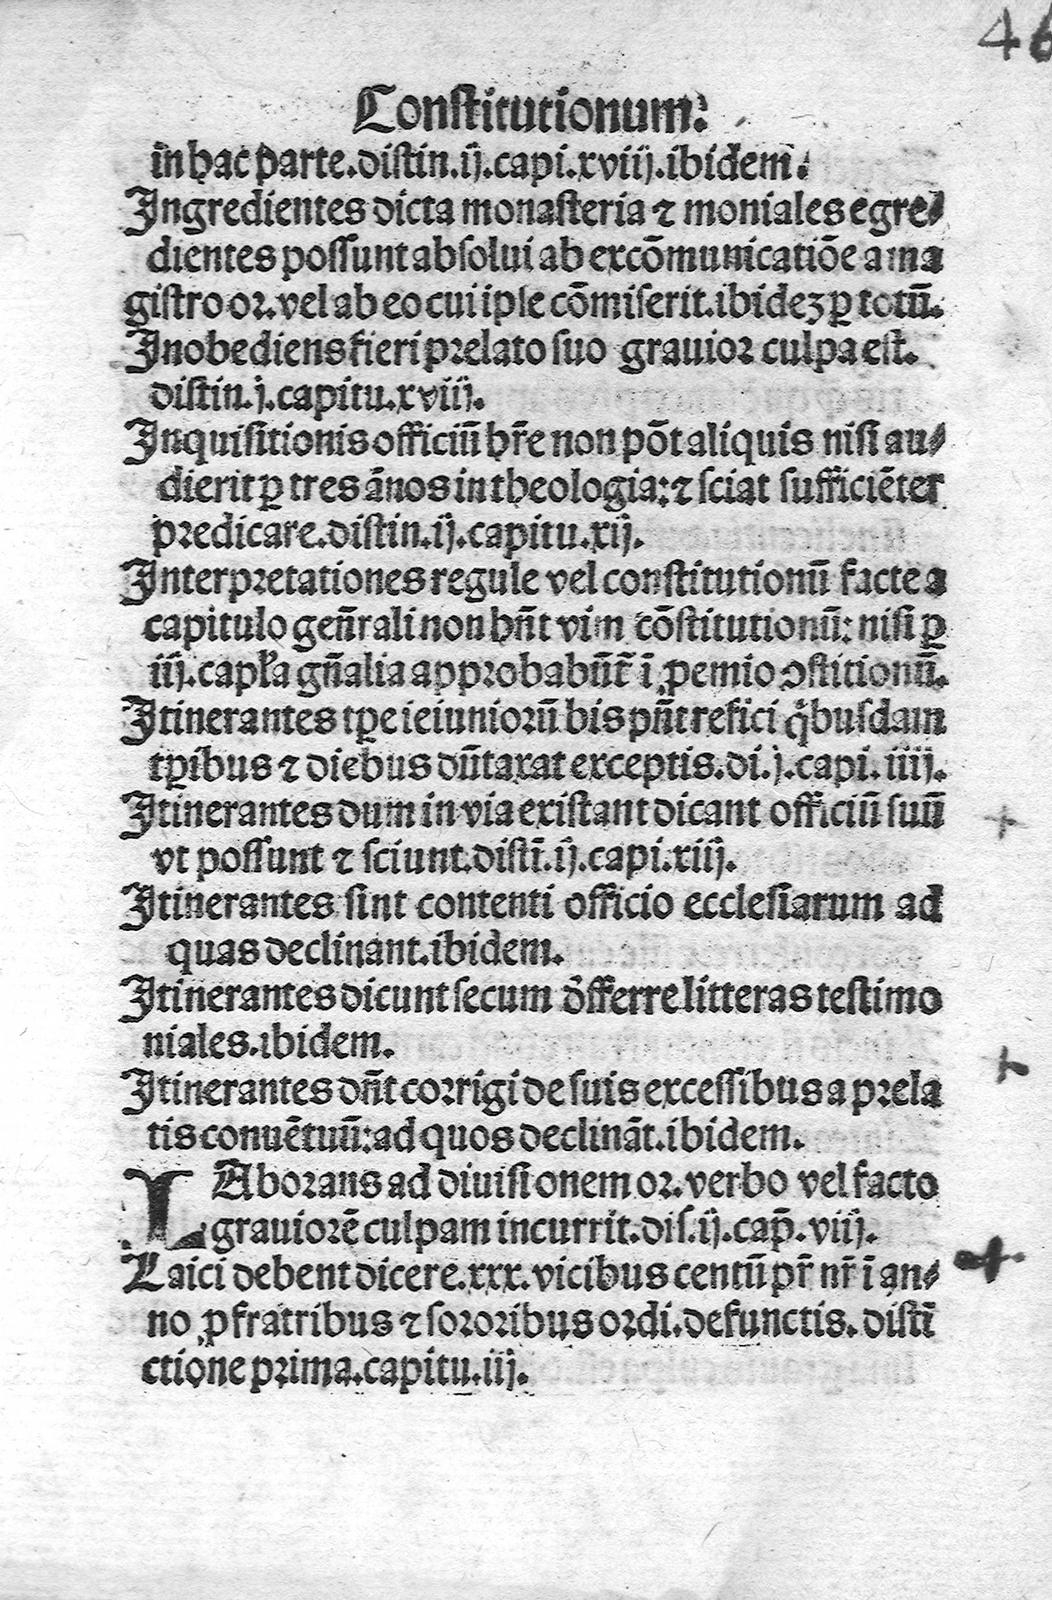 46
Constitutionum.
in hac parte.distin.ij.capi.xviij.ibidem.
Ingredientes dicta monasteria ⁊ moniales egre⸗
dientes possunt absolui ab excōmunicatiōe a ma
gistro or. vel ab eo cui ipse cōmiserit.ibideꝫ ꝑ totū.
Inobediens fieri prelato suo grauior culpa est.
distin.j.capitu.xviij.
Inquisitionis officiū hr̄e non pōt aliquis nisi au⸗
dierit ꝑ tres ānos in theologia: ⁊ sciat sufficiēter
predicare.distin.ij.capitu.xij.
Interpretationes regule vel constitutionū facte a
capitulo gen̄rali non hn̄t vim cōstitutionū: nisi ꝑ
iij.capl̓a gn̄alia approbabūt̄ ī ꝓemio ↄstitionū.
Itinerantes tꝑe ieiuniorū bis pn̄t refici qͥbusdam
tꝑibus ⁊ diebus dūtaxat exceptis.di.j.capi.iiij.
Itinerantes dum in via existant dicant officiū suū
vt possunt ⁊ sciunt.distī.ij.capi.xiij.
Itinerantes sint contenti officio ecclesiarum ad
quas declinant.ibidem.
Itinerantes dicunt secum d̄fferre litteras testimo
niales.ibidem.
Itinerantes dn̄t corrigi de suis excessibus a prela
tis conuētuū:ad quos declināt.ibidem.
LAborans ad diuisionem or. verbo vel facto
grauiorē culpam incurrit.dis.ij.cap̄.viij.
Laici debent dicere.xxx.vicibus centū pr̄ nr̄ ī an⸗
no ꝓ fratribus ⁊ sororibus ordi.defunctis. distī
ctione prima.capitu.iij.